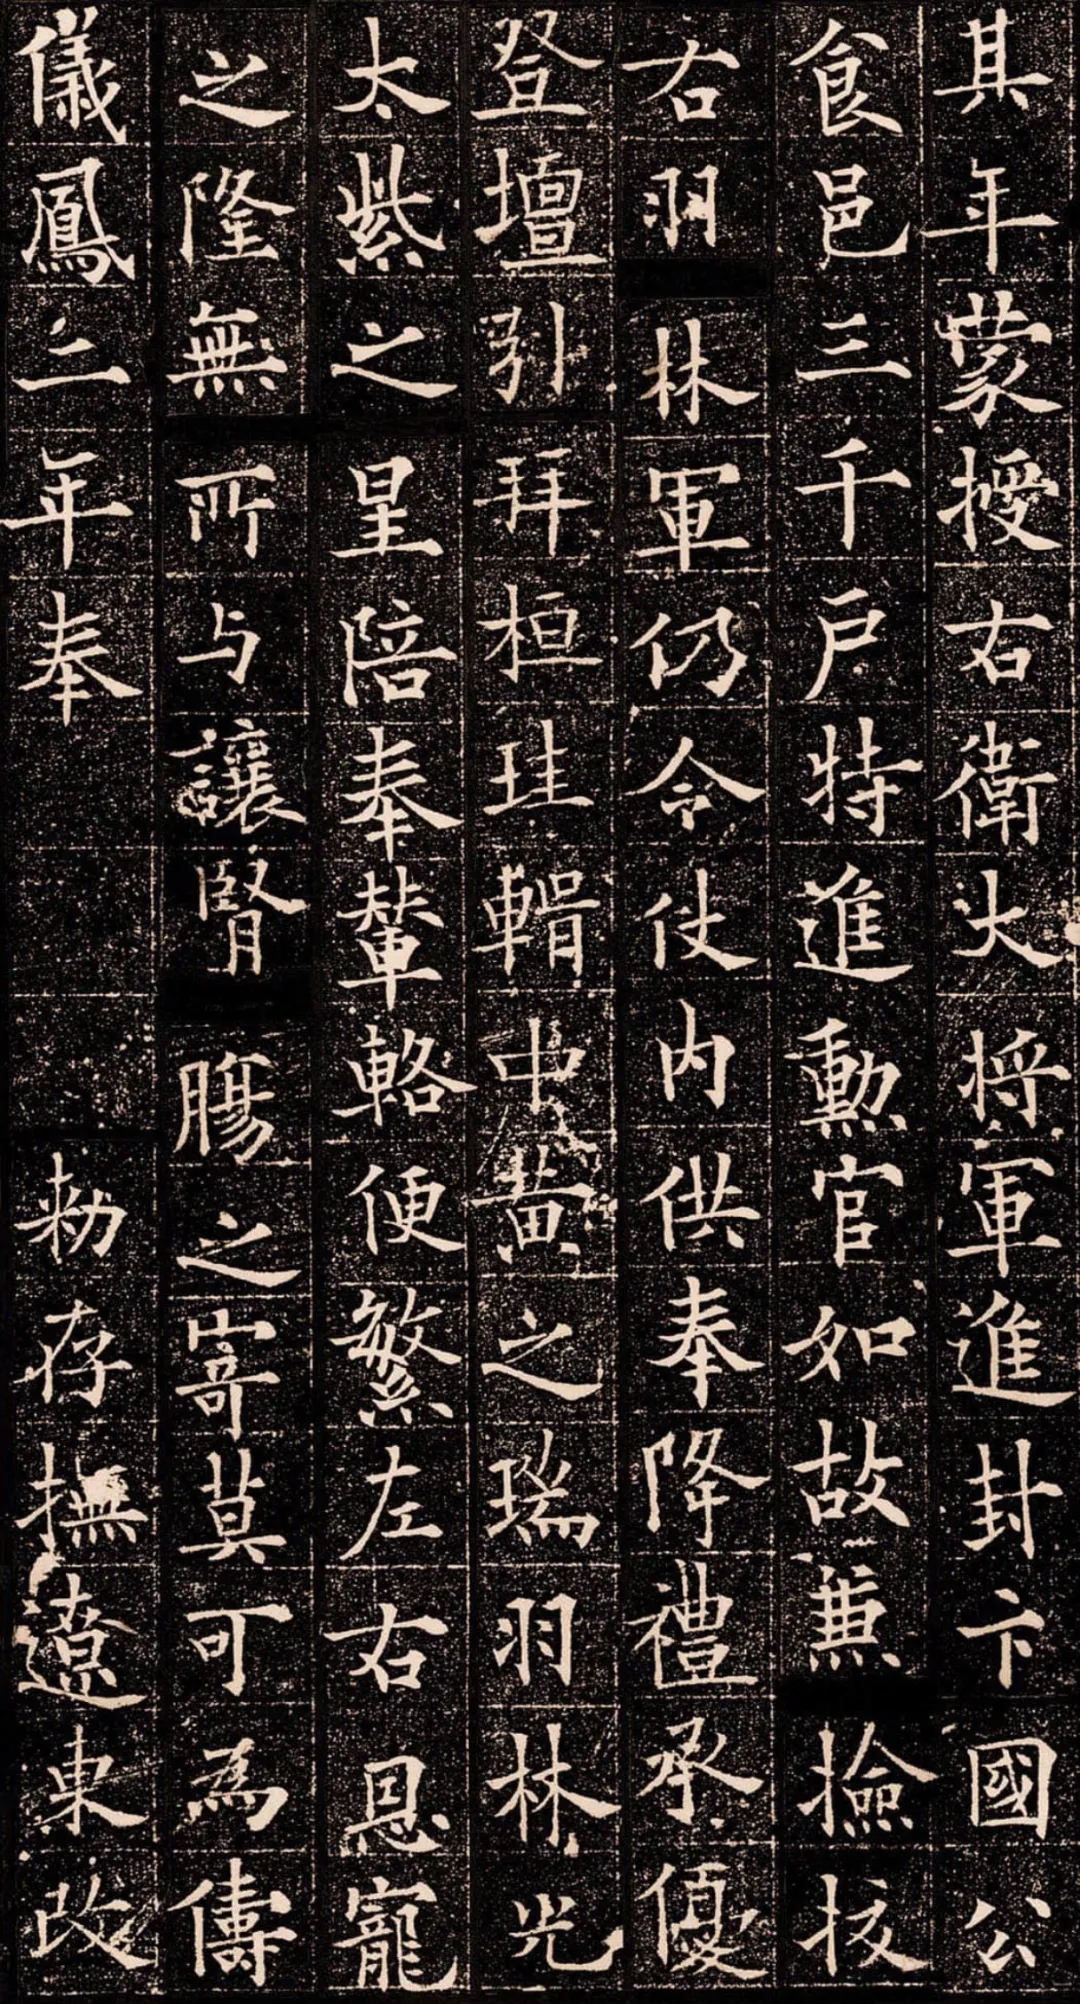 其年蒙授右衛大將軍進封卞國公
食邑三千戶特進勳官如故兼撿挍
右羽林軍仍令仗內供奉降禮承優
登壇引拜桓珪輯中黃之瑞羽林光
太紫之星陪奉輦輅便繁左右恩寵
之隆無所与讓腎膓之寄莫可為儔
儀鳳二年奉　　　勑存撫遼東改